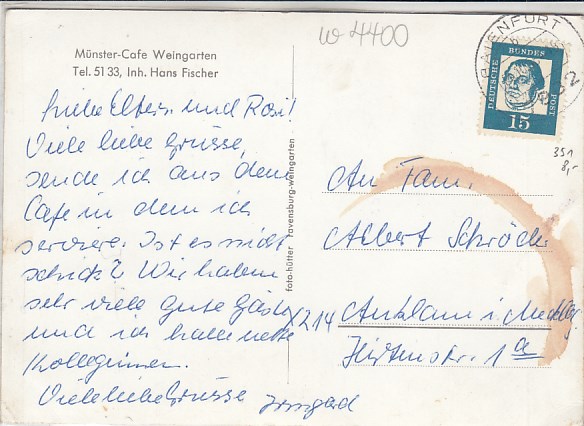 w 4400
Münster-Cafe Weingarten
Tel. 51 33, Inh. Hans Fischer
Liebe Eltern und Rosi!
Viele liebe Grüsse,
sende ich aus dem
Cafe in dem ich
serviere. Ist es nicht
schick? Wir haben
sehr viele gute Gäste
und ich habe nette
Kolleginnen.
Viele liebe Grüsse Irmgard
foto-hütter ravensburg-weingarten
BAIENFURT
DEUTSCHE BUNDESPOST
15
351
8,-
An Fam.
Albert Schröder
Y214 Anklam i. Meckbg
Hirtenstr. 1a